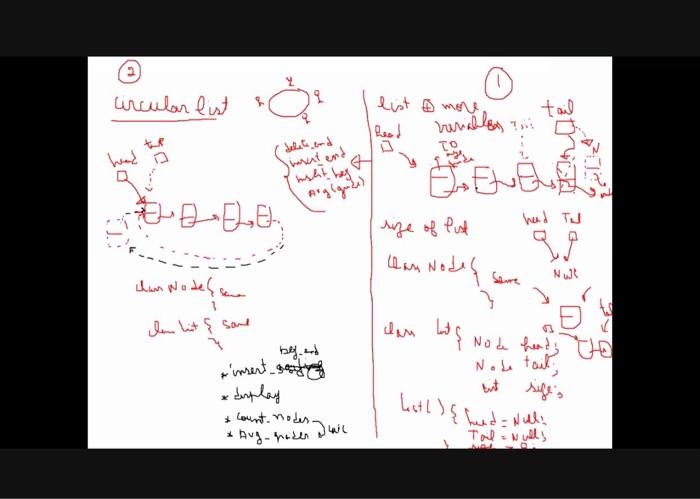 2
circular list
head
delete_end
insert_end
insert_beg
Avg(grade)
class Node { Same
}
class List { Same
}
beg_end
* insert
* display
* count_nodes
* Avg_grades
1
list ⊕ more
variables
tail
head
ID
N
size of list
head Tail
Null
class Node {
Same
}
class List {
Node head;
Node tail;
int size;
List() { head = Null;
Tail = Null;